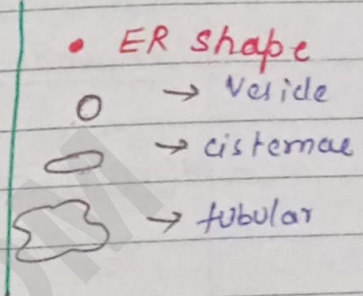 • ER shape
→ Vesicle
→ cisternae
→ tubular